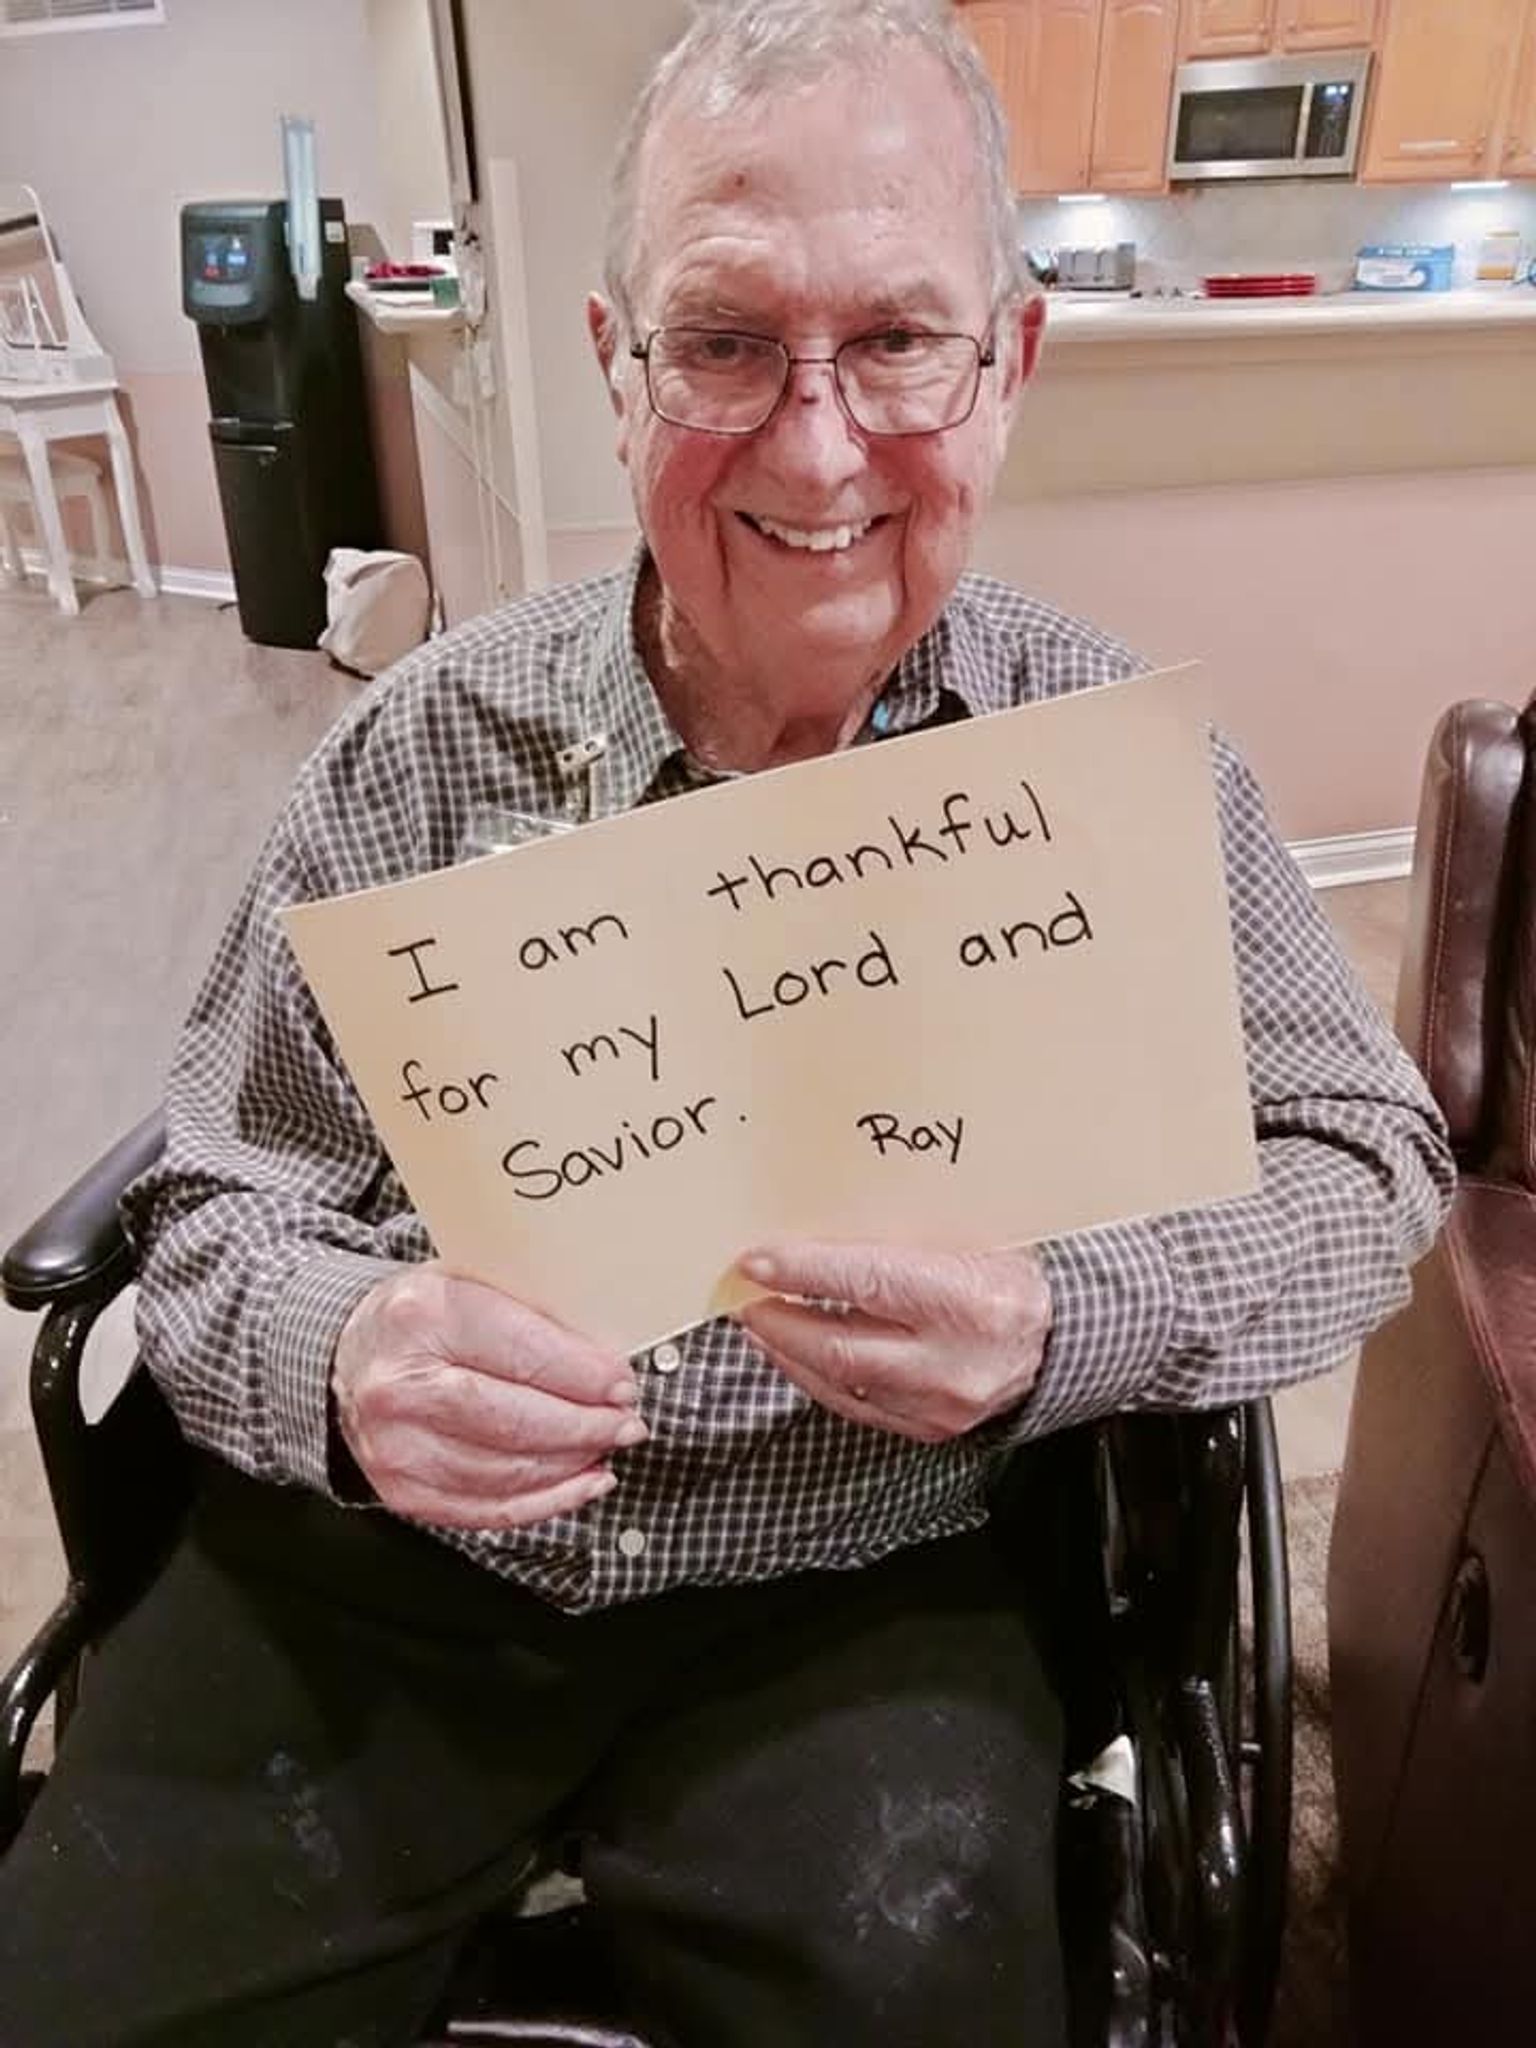 I am thankful
for my Lord and
Savior. Ray